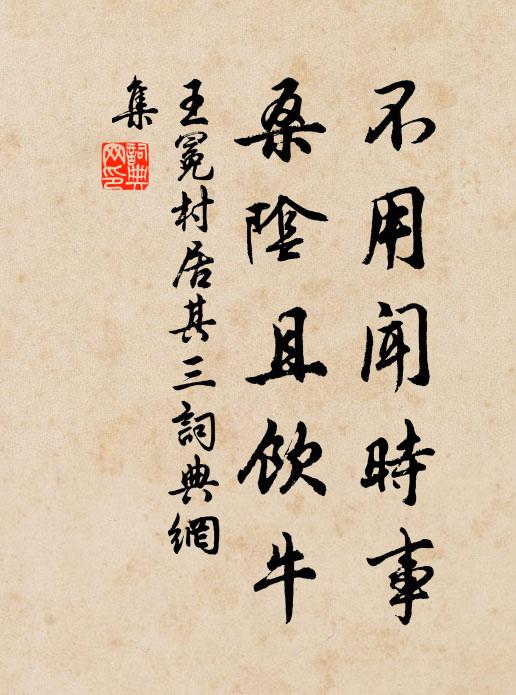 不用闻時事
桑陰且飲牛
王冕村居其三詞典網
集
詞典
网印